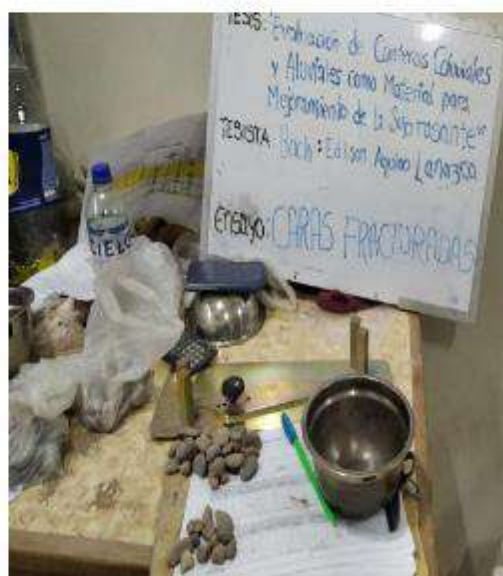 TESIS: "Evaluación de Canteras Coluviales
y Aluviales como Material para
Mejoramiento de la Subrasante"
TESISTA Bach: Edison Aquino Lanazca
ENSAYO: CARAS FRACTURADAS
CIELO